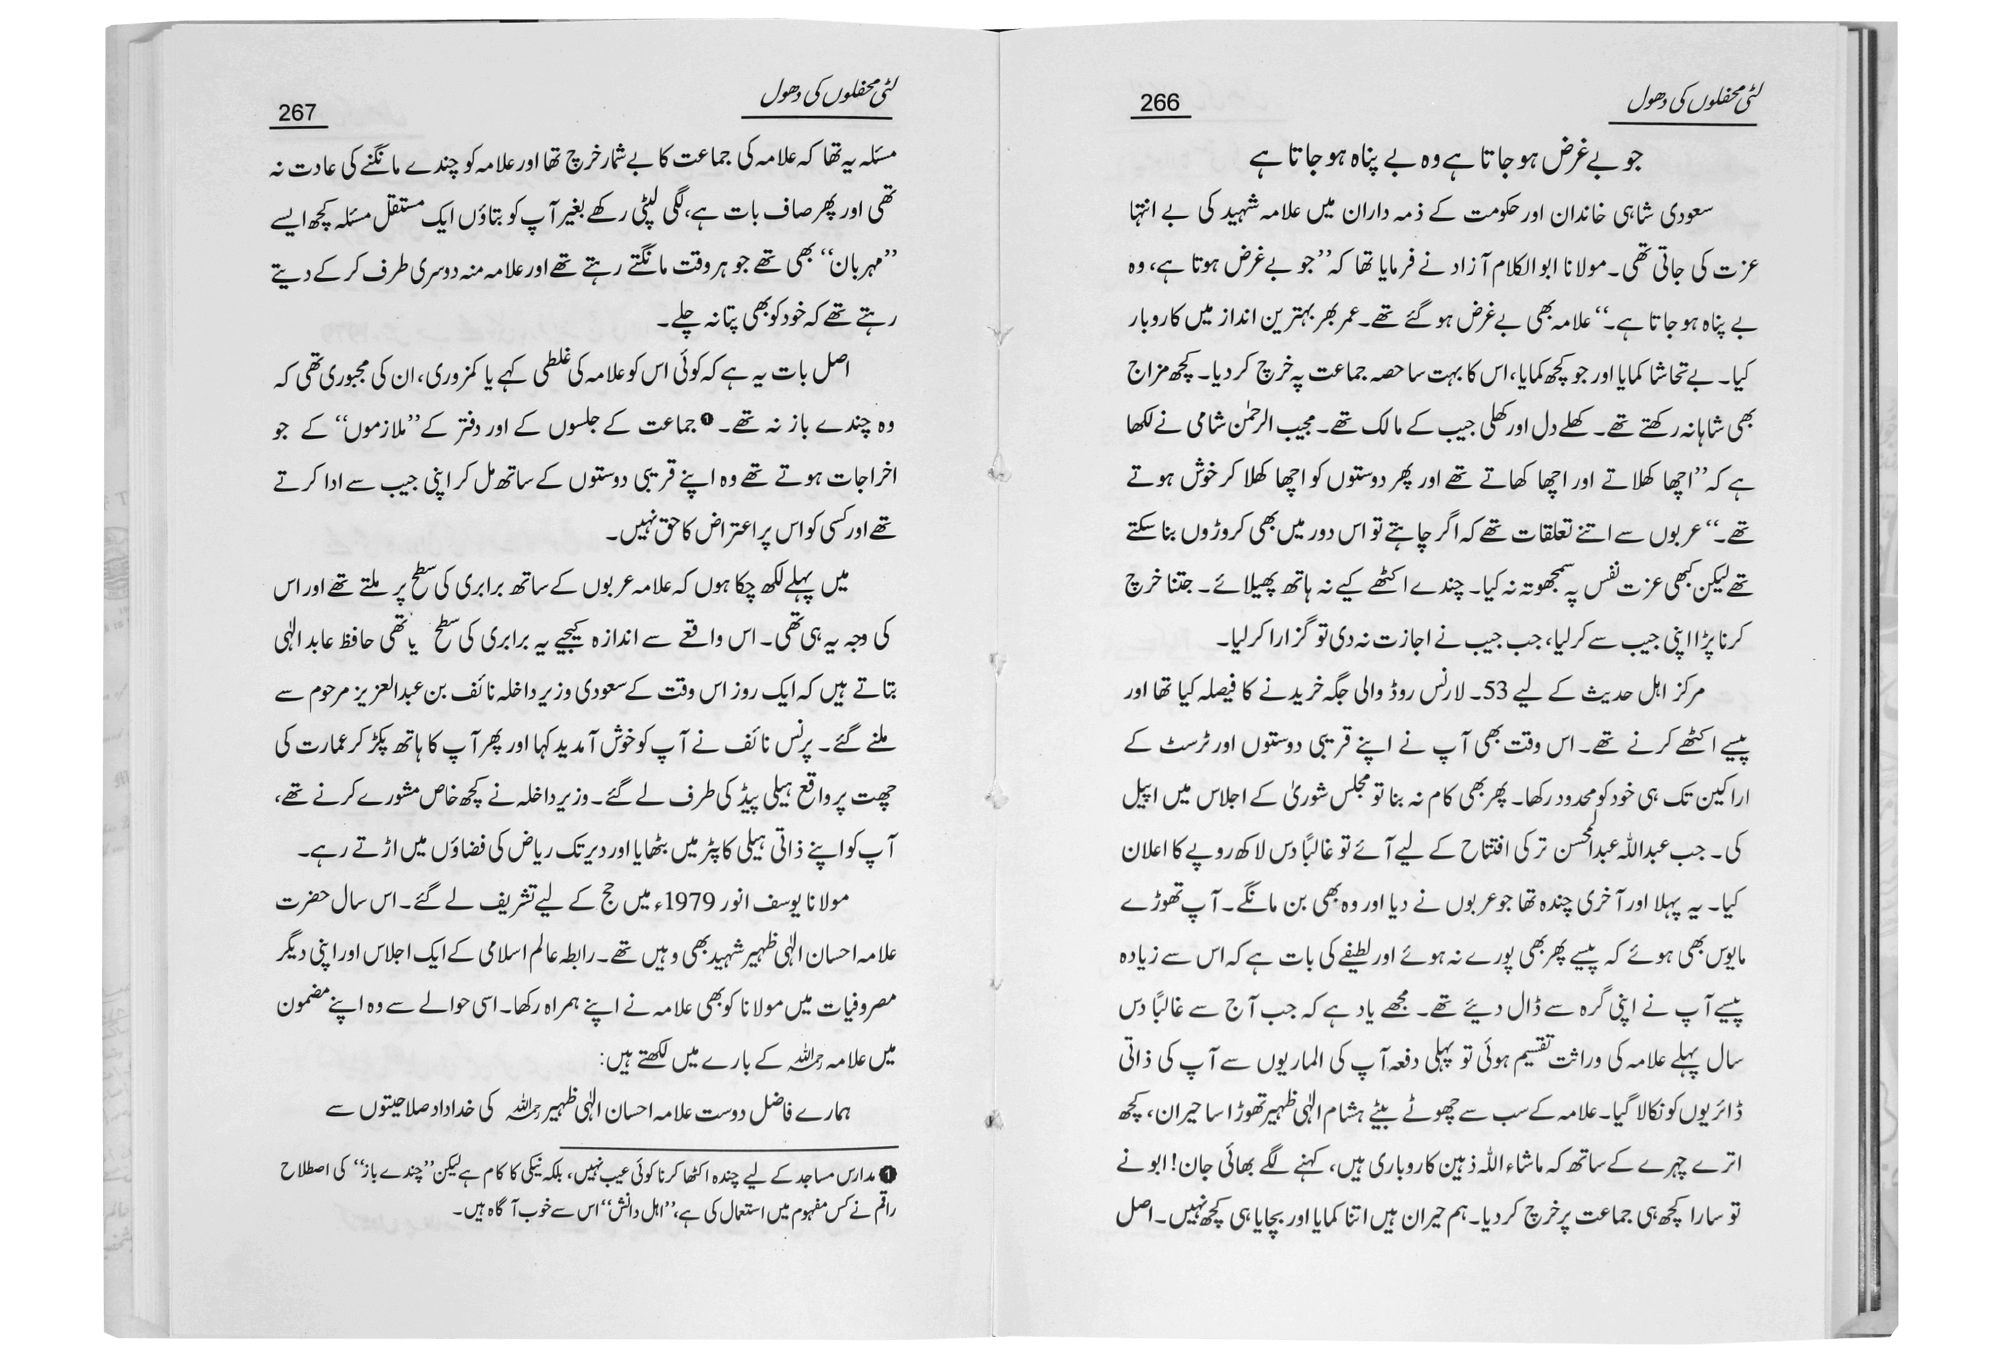 لٹی محفلوں کی دھول
266
جو بے غرض ہو جاتا ہے وہ بے پناہ ہو جاتا ہے
سعودی شاہی خاندان اور حکومت کے ذمہ داران میں علامہ شہید کی بے انتہا
عزت کی جاتی تھی۔ مولانا ابوالکلام آزاد نے فرمایا تھا کہ ’’جو بے غرض ہوتا ہے، وہ
بے پناہ ہو جاتا ہے۔‘‘ علامہ بھی بے غرض ہو گئے تھے۔ عمر بھر بہترین انداز میں کاروبار
کیا۔ بے تحاشا کمایا اور جو کچھ کمایا، اس کا بہت سا حصہ جماعت پہ خرچ کر دیا۔ کچھ مزاج
بھی شاہانہ رکھتے تھے۔ کھلے دل اور کھلی جیب کے مالک تھے۔ مجیب الرحمٰن شامی نے لکھا
ہے کہ ’’اچھا کھلاتے اور اچھا کھاتے تھے اور پھر دوستوں کو اچھا کھلا کر خوش ہوتے
تھے۔‘‘ عربوں سے اتنے تعلقات تھے کہ اگر چاہتے تو اس دور میں بھی کروڑوں بنا سکتے
تھے لیکن کبھی عزت نفس پہ سمجھوتہ نہ کیا۔ چندے اکٹھے کیے نہ ہاتھ پھیلائے۔ جتنا خرچ
کرنا پڑا اپنی جیب سے کر لیا، جب جیب نے اجازت نہ دی تو گزارا کر لیا۔
مرکز اہل حدیث کے لیے 53۔ لارنس روڈ والی جگہ خریدنے کا فیصلہ کیا تھا اور
پیسے اکٹھے کرنے تھے۔ اس وقت بھی آپ نے اپنے قریبی دوستوں اور ٹرسٹ کے
اراکین تک ہی خود کو محدود رکھا۔ پھر بھی کام نہ بنا تو مجلس شوریٰ کے اجلاس میں اپیل
کی۔ جب عبداللہ عبدالمحسن ترکی افتتاح کے لیے آئے تو غالباً دس لاکھ روپے کا اعلان
کیا۔ یہ پہلا اور آخری چندہ تھا جو عربوں نے دیا اور وہ بھی بن مانگے۔ آپ تھوڑے
مایوس بھی ہوئے کہ پیسے پھر بھی پورے نہ ہوئے اور لطیفے کی بات ہے کہ اس سے زیادہ
پیسے آپ نے اپنی گرہ سے ڈال دیئے تھے۔ مجھے یاد ہے کہ جب آج سے غالباً دس
سال پہلے علامہ کی وراثت تقسیم ہوئی تو پہلی دفعہ آپ کی الماریوں سے آپ کی ذاتی
ڈائریوں کو نکالا گیا۔ علامہ کے سب سے چھوٹے بیٹے ہشام الٰہی ظہیر تھوڑا سا حیران، کچھ
اترے چہرے کے ساتھ کہ ماشاء اللہ ذہین کاروباری ہیں، کہنے لگے بھائی جان! ابو نے
تو سارا کچھ ہی جماعت پر خرچ کر دیا۔ ہم حیران ہیں اتنا کمایا اور بچایا ہی کچھ نہیں۔ اصل
لٹی محفلوں کی دھول
267
مسئلہ یہ تھا کہ علامہ کی جماعت کا بے شمار خرچ تھا اور علامہ کو چندے مانگنے کی عادت نہ
تھی اور پھر صاف بات ہے، لگی لپٹی رکھے بغیر آپ کو بتاؤں ایک مستقل مسئلہ کچھ ایسے
’’مہربان‘‘ بھی تھے جو ہر وقت مانگتے رہتے تھے اور علامہ منہ دوسری طرف کر کے دیتے
رہتے تھے کہ خود کو بھی پتا نہ چلے۔
اصل بات یہ ہے کہ کوئی اس کو علامہ کی غلطی کہے یا کمزوری، ان کی مجبوری تھی کہ
وہ چندے باز نہ تھے۔❶ جماعت کے جلسوں کے اور دفتر کے ’’ملازموں‘‘ کے جو
اخراجات ہوتے تھے وہ اپنے قریبی دوستوں کے ساتھ مل کر اپنی جیب سے ادا کرتے
تھے اور کسی کو اس پر اعتراض کا حق نہیں۔
میں پہلے لکھ چکا ہوں کہ علامہ عربوں کے ساتھ برابری کی سطح پر ملتے تھے اور اس
کی وجہ یہ ہی تھی۔ اس واقعے سے اندازہ کیجیے یہ برابری کی سطح یا تھی حافظ عابد الٰہی
بتاتے ہیں کہ ایک روز اس وقت کے سعودی وزیر داخلہ نائف بن عبدالعزیز مرحوم سے
ملنے گئے۔ پرنس نائف نے آپ کو خوش آمدید کہا اور پھر آپ کا ہاتھ پکڑ کر عمارت کی
چھت پر واقع ہیلی پیڈ کی طرف لے گئے۔ وزیر داخلہ نے کچھ خاص مشورے کرنے تھے،
آپ کو اپنے ذاتی ہیلی کاپٹر میں بٹھایا اور دیر تک ریاض کی فضاؤں میں اڑتے رہے۔
مولانا یوسف انور 1979ء میں حج کے لیے تشریف لے گئے۔ اس سال حضرت
علامہ احسان الٰہی ظہیر شہید بھی وہیں تھے۔ رابطہ عالم اسلامی کے ایک اجلاس اور اپنی دیگر
مصروفیات میں مولانا کو بھی علامہ نے اپنے ہمراہ رکھا۔ اسی حوالے سے وہ اپنے مضمون
میں علامہ رحمہ اللہ کے بارے میں لکھتے ہیں:
ہمارے فاضل دوست علامہ احسان الٰہی ظہیر رحمہ اللہ کی خداداد صلاحیتوں سے
❶ مدارس مساجد کے لیے چندہ اکٹھا کرنا کوئی عیب نہیں، بلکہ نیکی کا کام ہے لیکن ’’چندے باز‘‘ کی اصطلاح
راقم نے کس مفہوم میں استعمال کی ہے، ’’اہل دانش‘‘ اس سے خوب آگاہ ہیں۔